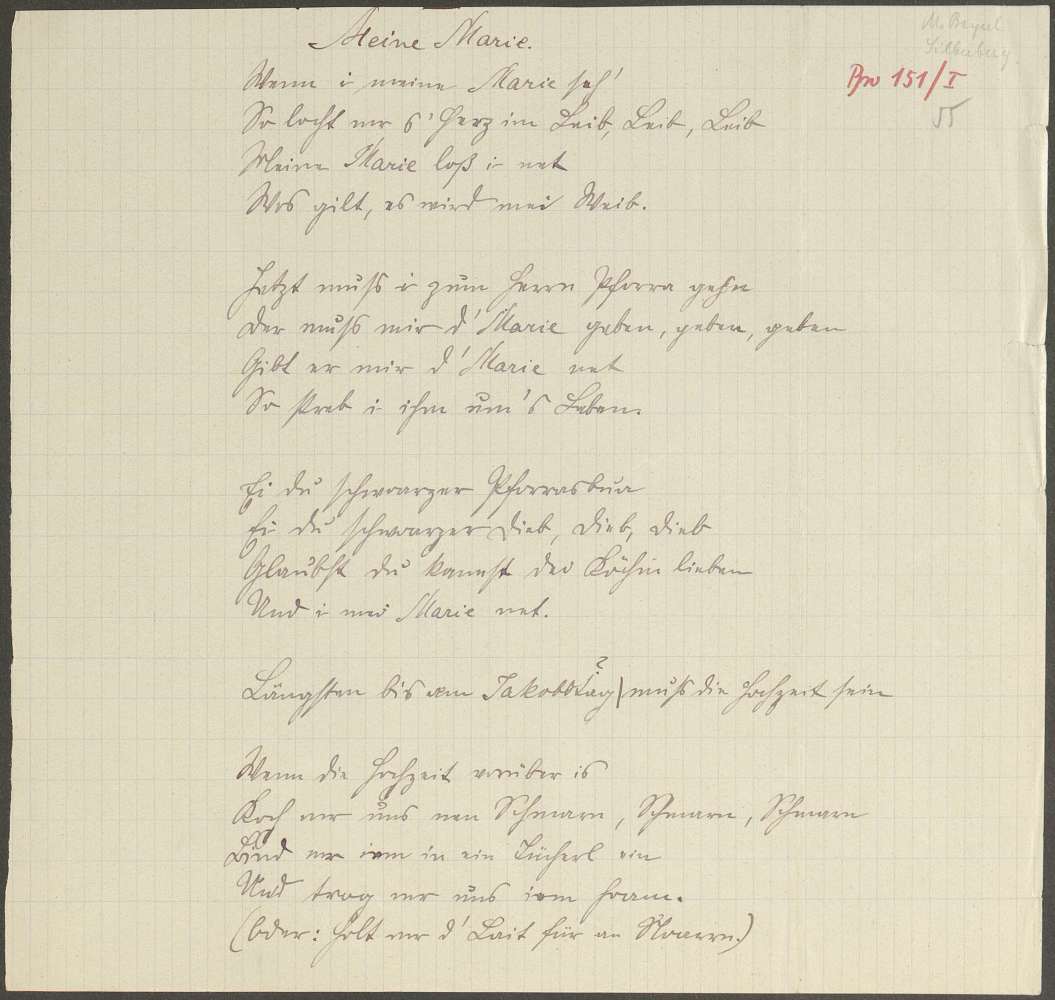 Meine Marie.
Pro 151/I
55
Wenn i meine Marie seh'
So locht mr s' Herz im Leib, Leib, Leib
Meine Marie loß i net
Wos gilt, es wird mei Weib.
Jetzt muss i zum Herrn Pforra gehn
Der muss mir d' Marie geben, geben, geben
Gibt er mir d' Marie net
So streb i ihm um's Leben.
Ei du schwoarzer Pforrasbua
Ei du schwoarzer Dieb, Dieb, Dieb
Glaubst du kannst dei Köchin lieben
Und i mei Marie net.
?
Längsten bis am Jakobstag | muss die Hochzeit sein
Wenn die Hochzeit vorüber is
Koch mr uns nen Schmarn, Schmarn, Schmarn
Bind mr ihm in ein Tücherl ein
Und trog mr uns ihm hoam.
(Oder: Holt mr d' Lait für an Noarrn)